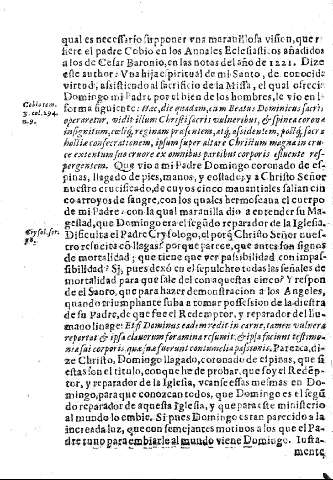 qual es necessario supponer vna marauillosa vision, que re
fiere el padre Cobio en los Annales Eclesiasti. os añadidos
a los de Cesar Baronio, en las notas del año de 1221. Dize
este author: Vna hija espiritual de mi Santo, de conocida
virtud, assistiendo al sacrificio de la Missa, el qual ofrecia
Domingo mi Padre por el bien de los hombres, le vio en la
Cobio tom.
3. col. 294.
n. 9.
forma siguiente: Hæc, die quadam, cum Beatus Dominicus sacris
operaretur, vidit illum Christi sacris vulneribus, & spinea corona
insignitum, cælig, reginam præsentem, atq, assidentem, postq, sacra
hostiæ consecrationem, ipsum super altare Christum magna in cru-
ce extentum suo cruore ex omnibus partibus corporis effluente res-
pergentem. Que vio a mi Padre Domingo coronado de es-
pinas, llagado de pies, manos, y costado; y a Christo Señor
nuestro crucificado, de cuyos cinco manantiales salian cin
co arroyos de sangre, con los quales hermoseaua el cuerpo
de mi Padre: con la qual marauilla dio a entender su Ma-
gestad, que Domingo era el segūdo reparador de la Iglesia.
Crysol. ser.
Dificulta el Padre Crysologo, el porq̄ Christo Señor nues-
tro resucita cō llagas? porque parece, que antes son signos
de mortalidad; que tiene que ver passibilidad con impas-
sibilidad? Si, pues dexò en el sepulchro todas las señales de
mortalidad para que sale del con aquestas cinco? Y respon
de el Santo, que para hazer demostracion a los Angeles,
quando triumphante suba a tomar possession de la diestra
de su Padre, de que fue el Redemptor, y reparador del hu-
mano linage: Etsi Dominus eadem redit in carne, tamen vulnera
reportat & ipsa clauorum foramina resumit, & ipsa fiunt testimo-
nia sui corporis quæ fuerunt contumelia passionis. Parezca, di-
ze Christo, Domingo llagado, coronado de espinas, que si
estas son el titulo, con que he de probar, que soy el Redēp-
tor, y reparador de la Iglesia, veanse estas mesmas en Do-
mingo, para que conozcan todos, que Domingo es el segū
do reparador de aquesta Iglesia, y que para este ministerio
al mundo lo embie. Si pues Domingo es tan parecido a la
increada luz, que con semejantes motiuos a los que el Pa-
dre tuuo para embiarle al mundo viene Domingo. Iusta-
mente